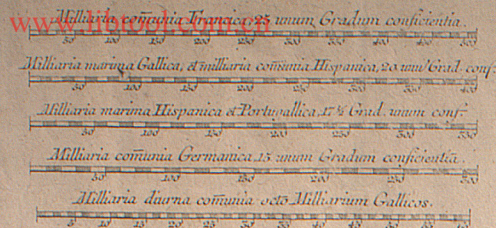 www.libropl.com.cn
Milliaria com̃unia Francica 25 unum Gradum conficientia.
50 100 150 200 250 300 350 400 450 500
Milliaria marina Gallica, et milliaria com̃unia Hispanica, 20 unu Grad. conf.
50 100 150 200 250 300 350 400
Milliaria marima Hispanica et Portugallica, 17½ Grad. unum conf.
50 100 150 200 250 300
Milliaria com̃unia Germanica, 15 unum Gradum conficientia.
50 100 150 200 250 300
Milliaria diurna com̃unia octo Milliarium Gallicos.
5 10 15 20 25 30 35 40 45